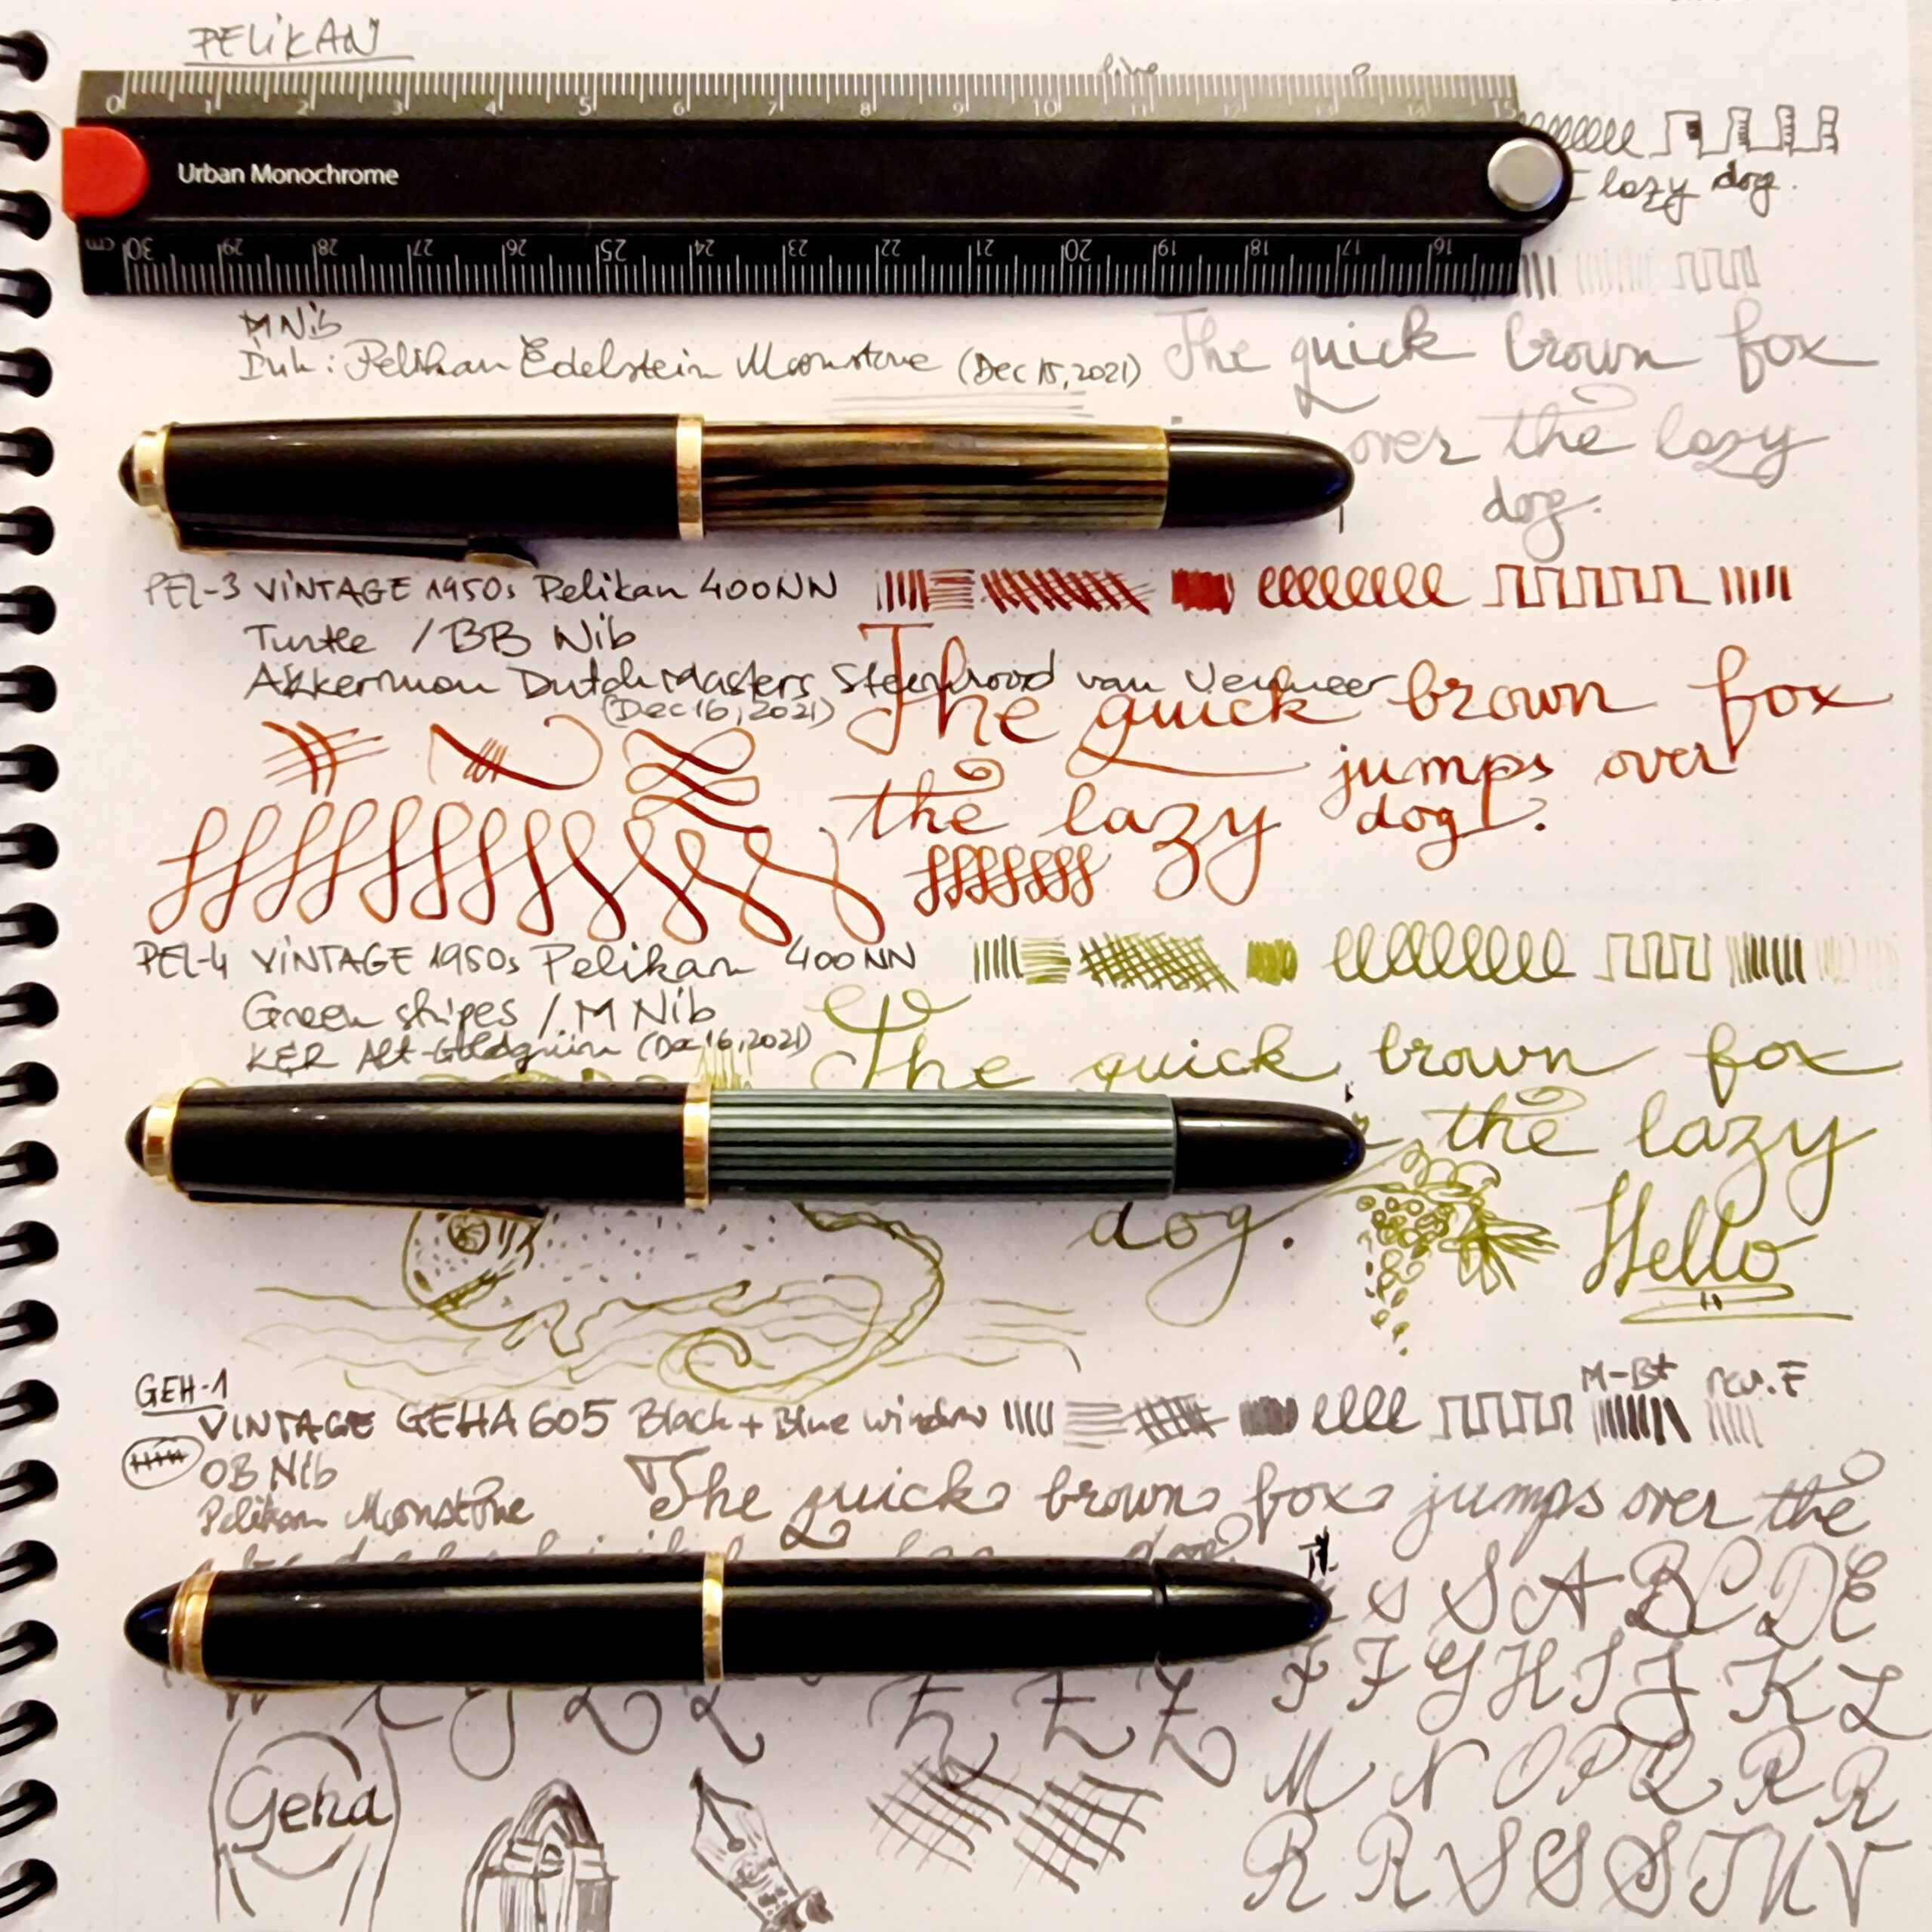 PELiKAN
fine
0 1 2 3 4 5 6 7 8 9 10 11 12 13 14 15
Urban Monochrome
lazy dog.
cm 30 29 28 27 26 25 24 23 22 21 20 19 18 17 16
M Nib
Ink: Pelikan Edelstein Moonstone (Dec 15, 2021)
The quick brown fox
over the lazy
dog.
PEL-3 ViNTAGE 1950s Pelikan 400NN
Turtle / BB Nib
Akkerman Dutch Masters Steenrood van Vermeer
(Dec 16, 2021)
The quick brown fox
jumps over
the lazy dog.
PEL-4 ViNTAGE 1950s Pelikan 400NN
Green stripes / M Nib
K&R Alt-Goldgrün (Dec 16, 2021)
The quick brown fox
the lazy
dog.
Hello
GEH-1
VINTAGE GEHA 605 Black + Blue window
M-B* rev. F
OB Nib
Pelikan Moonstone
The quick brown fox jumps over the
S A B C D E
F F G H I J K L
M N O P Q R R
R R S S S T U V
Geha